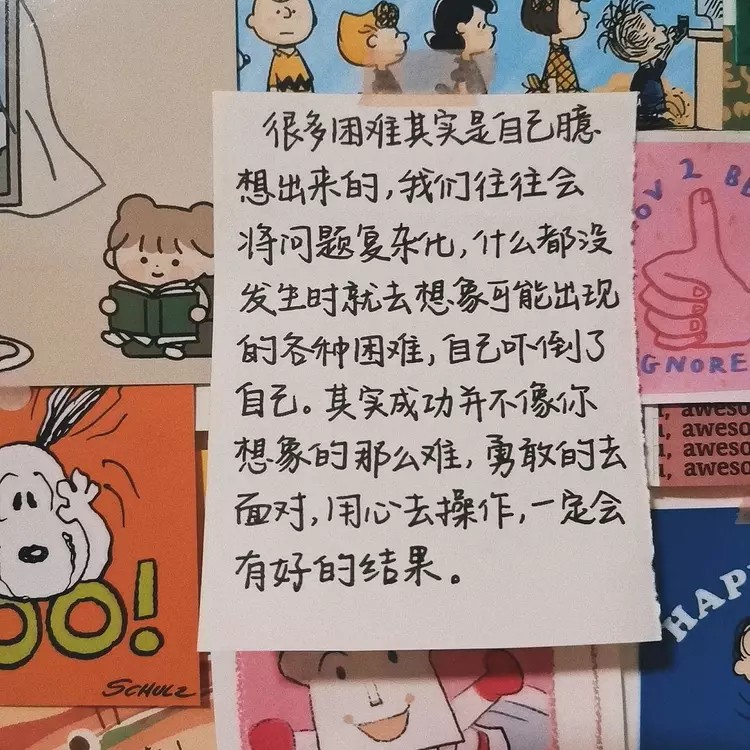 很多困难其实是自己臆
想出来的,我们往往会
将问题复杂化,什么都没
发生时就去想象可能出现
的各种困难,自己吓倒了
自己。其实成功并不像你
想象的那么难,勇敢的去
面对,用心去操作,一定会
有好的结果。
OV 2 BE
GNORE
, aweso
, aweso
, aweso
OO!
SCHULZ
HAPP